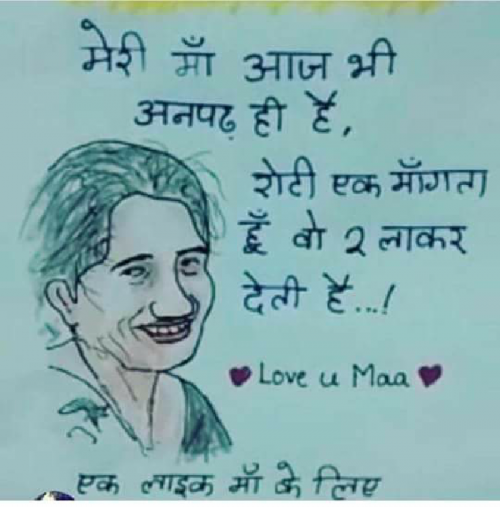 मेरी माँ आज भी
अनपढ़ ही है,
रोटी एक माँगता
हूँ वो २ लाकर
देती है...!
♥ Love u Maa ♥
एक लाइक माँ के लिए